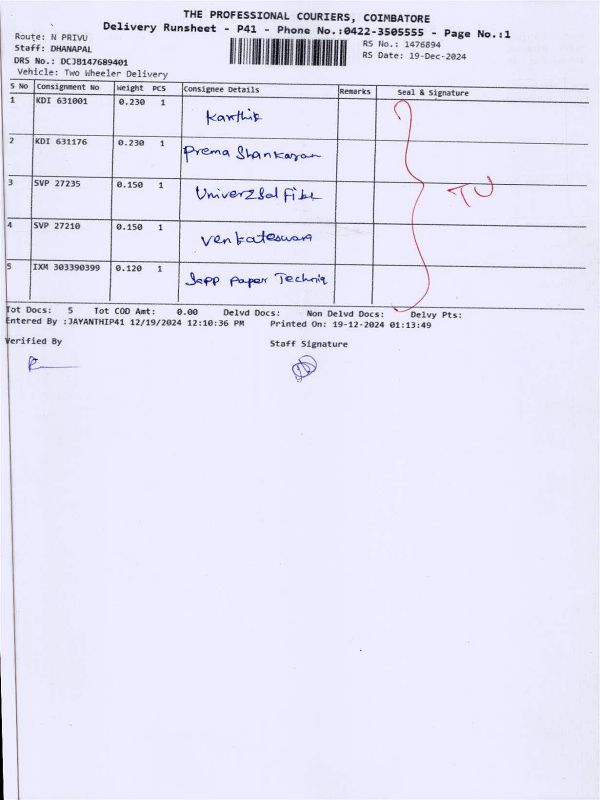 THE PROFESSIONAL COURIERS, COIMBATORE
Delivery Runsheet - P41 - Phone No.:0422-3505555 - Page No.:1
Route: N PRIVU
RS No.: 1476894
Staff: DHANAPAL
RS Date: 19-Dec-2024
DRS No.: DCJB147689401
Vehicle: Two Wheeler Delivery
S No Consignment No Weight PCS Consignee Details Remarks Seal & Signature
1 KDI 631001 0.230 1 Karthik
2 KDI 631176 0.230 1 Prema Shankaran
3 SVP 27235 0.150 1 Univerzsal Fibe
4 SVP 27210 0.150 1 Venkateswara
5 IXM 303390399 0.120 1 paper Techniq
TU
Tot Docs: 5 Tot COD Amt: 0.00 Delvd Docs: Non Delvd Docs: Delvy Pts:
Entered By :JAYANTHIP41 12/19/2024 12:10:36 PM Printed On: 19-12-2024 01:13:49
Verified By Staff Signature